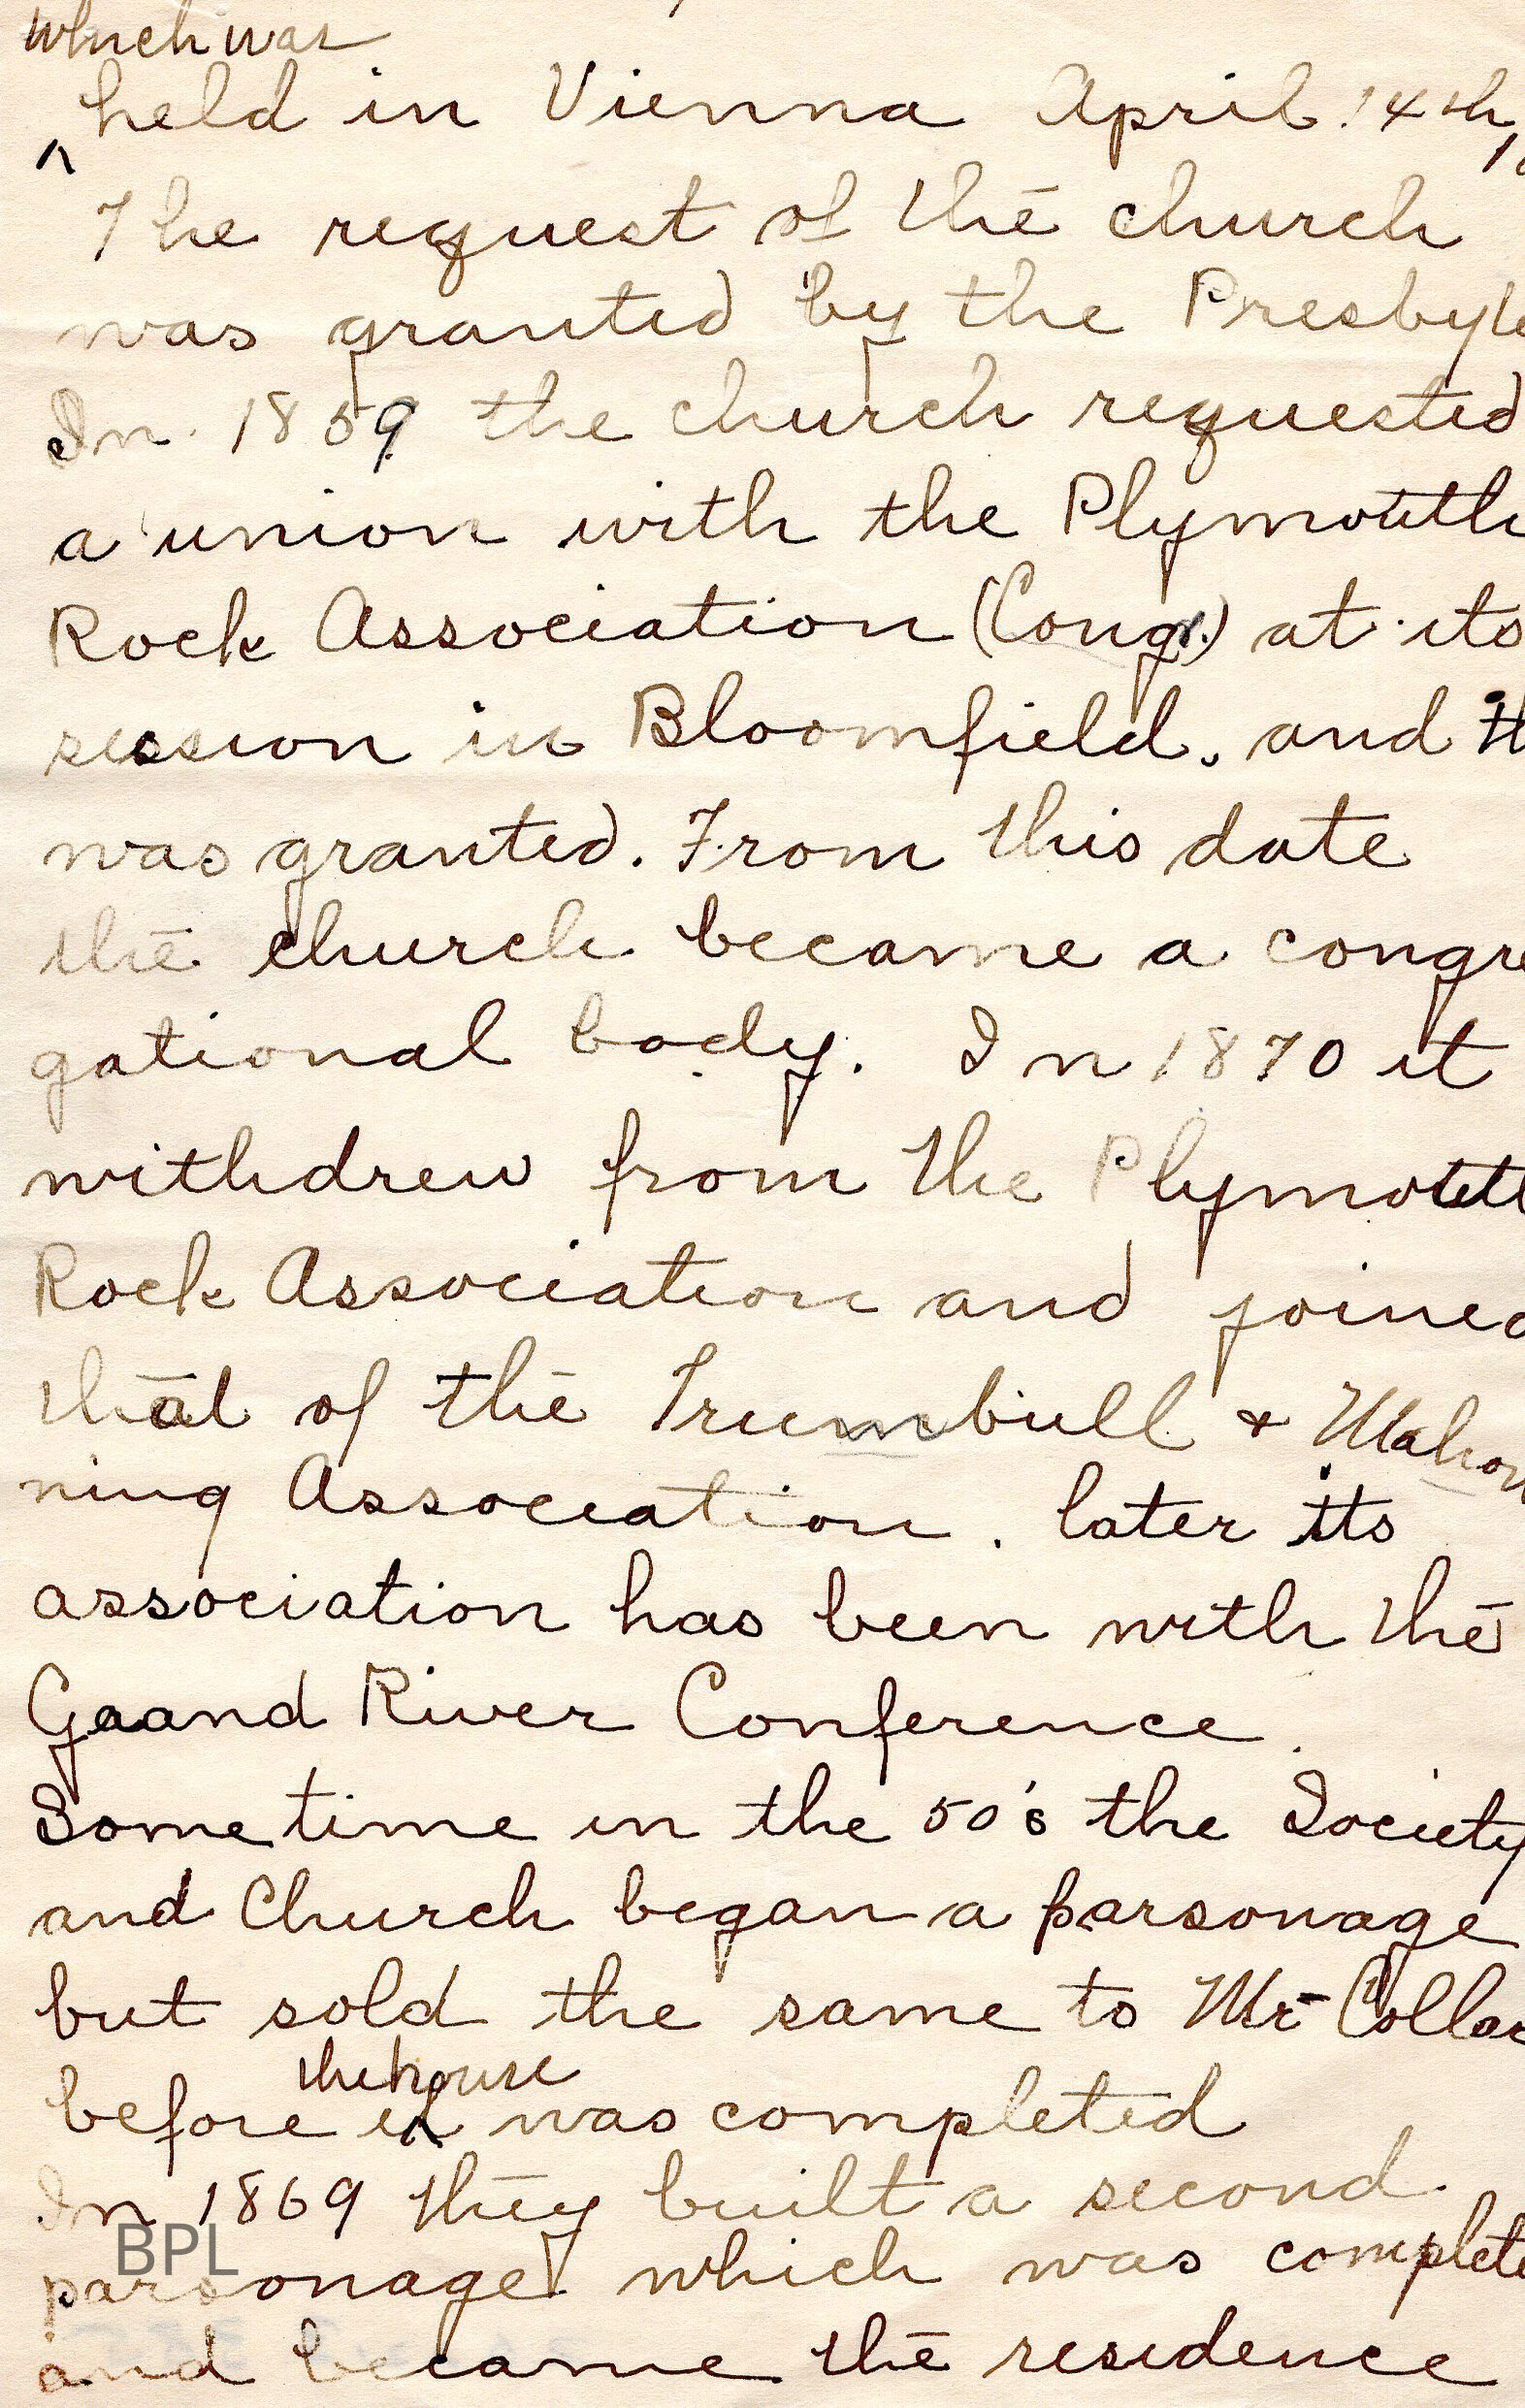 which was
^ held in Vienna April 14th, 1
The request of the church
was granted by the Presbyte
In 1859 the church requested
a union with the Plymouth
Rock Association (Congr.) at its
session in Bloomfield, and it
was granted. From this date
the church became a congre
gational body. In 1870 it
withdrew from the Plymouth
Rock Association and joined
that of the Trumbull & Mahon
ning Association. later its
association has been with the
Graand River Conference.
Sometime in the 50's the Society
and Church began a parsonage
but sold the same to Mr Collar
the house
before it was completed
In 1869 they built a second
parsonage which was complete
and became the residence
BPL